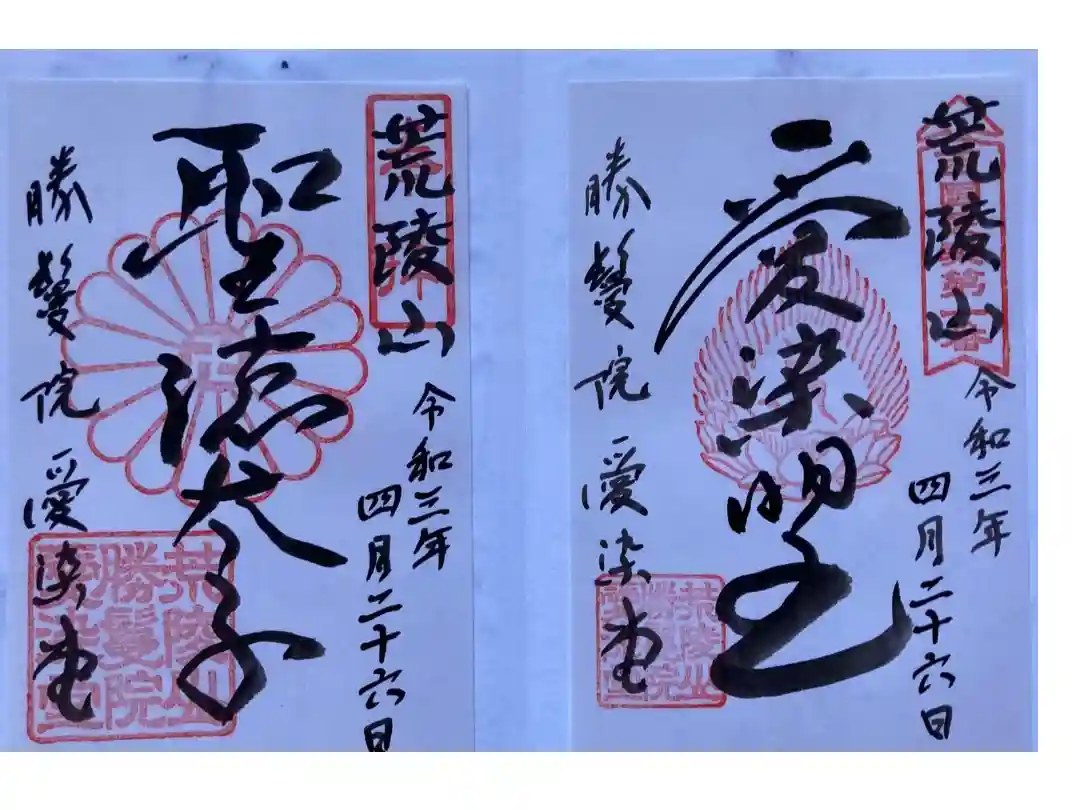 荒陵山
令和三年
四月二十六日
愛染明王
勝鬘院愛染堂
荒陵山
勝鬘院
愛染堂
荒陵山
令和三年
四月二十六日
聖徳太子
勝鬘院愛染堂
荒陵山
勝鬘院
愛染堂